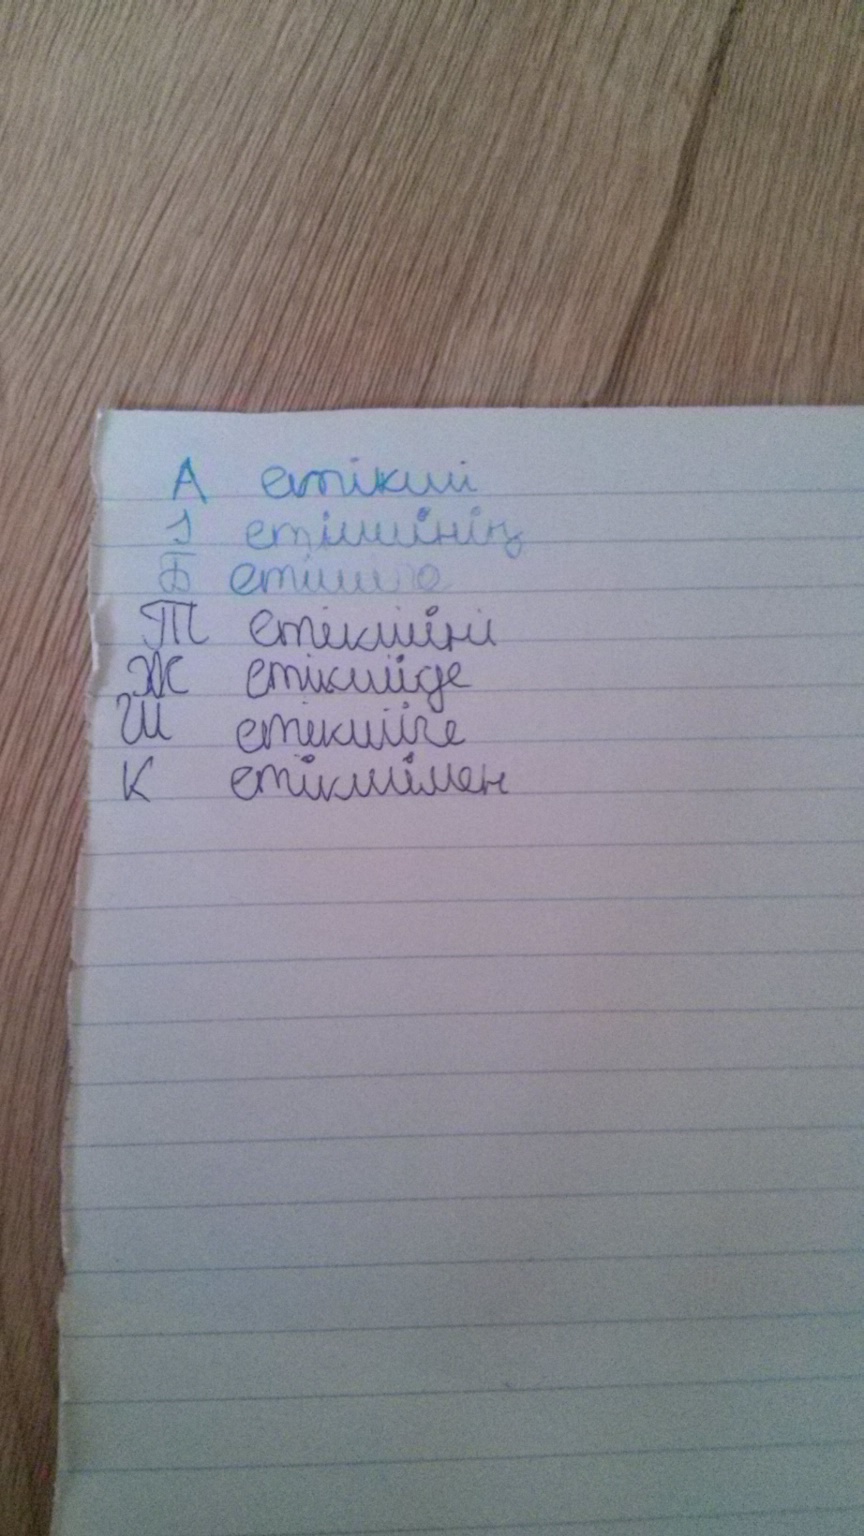 А етікші
І етішінің
Б
Т етікшіні
Ж етікшіде
Ш етікшіге
К етікшімен